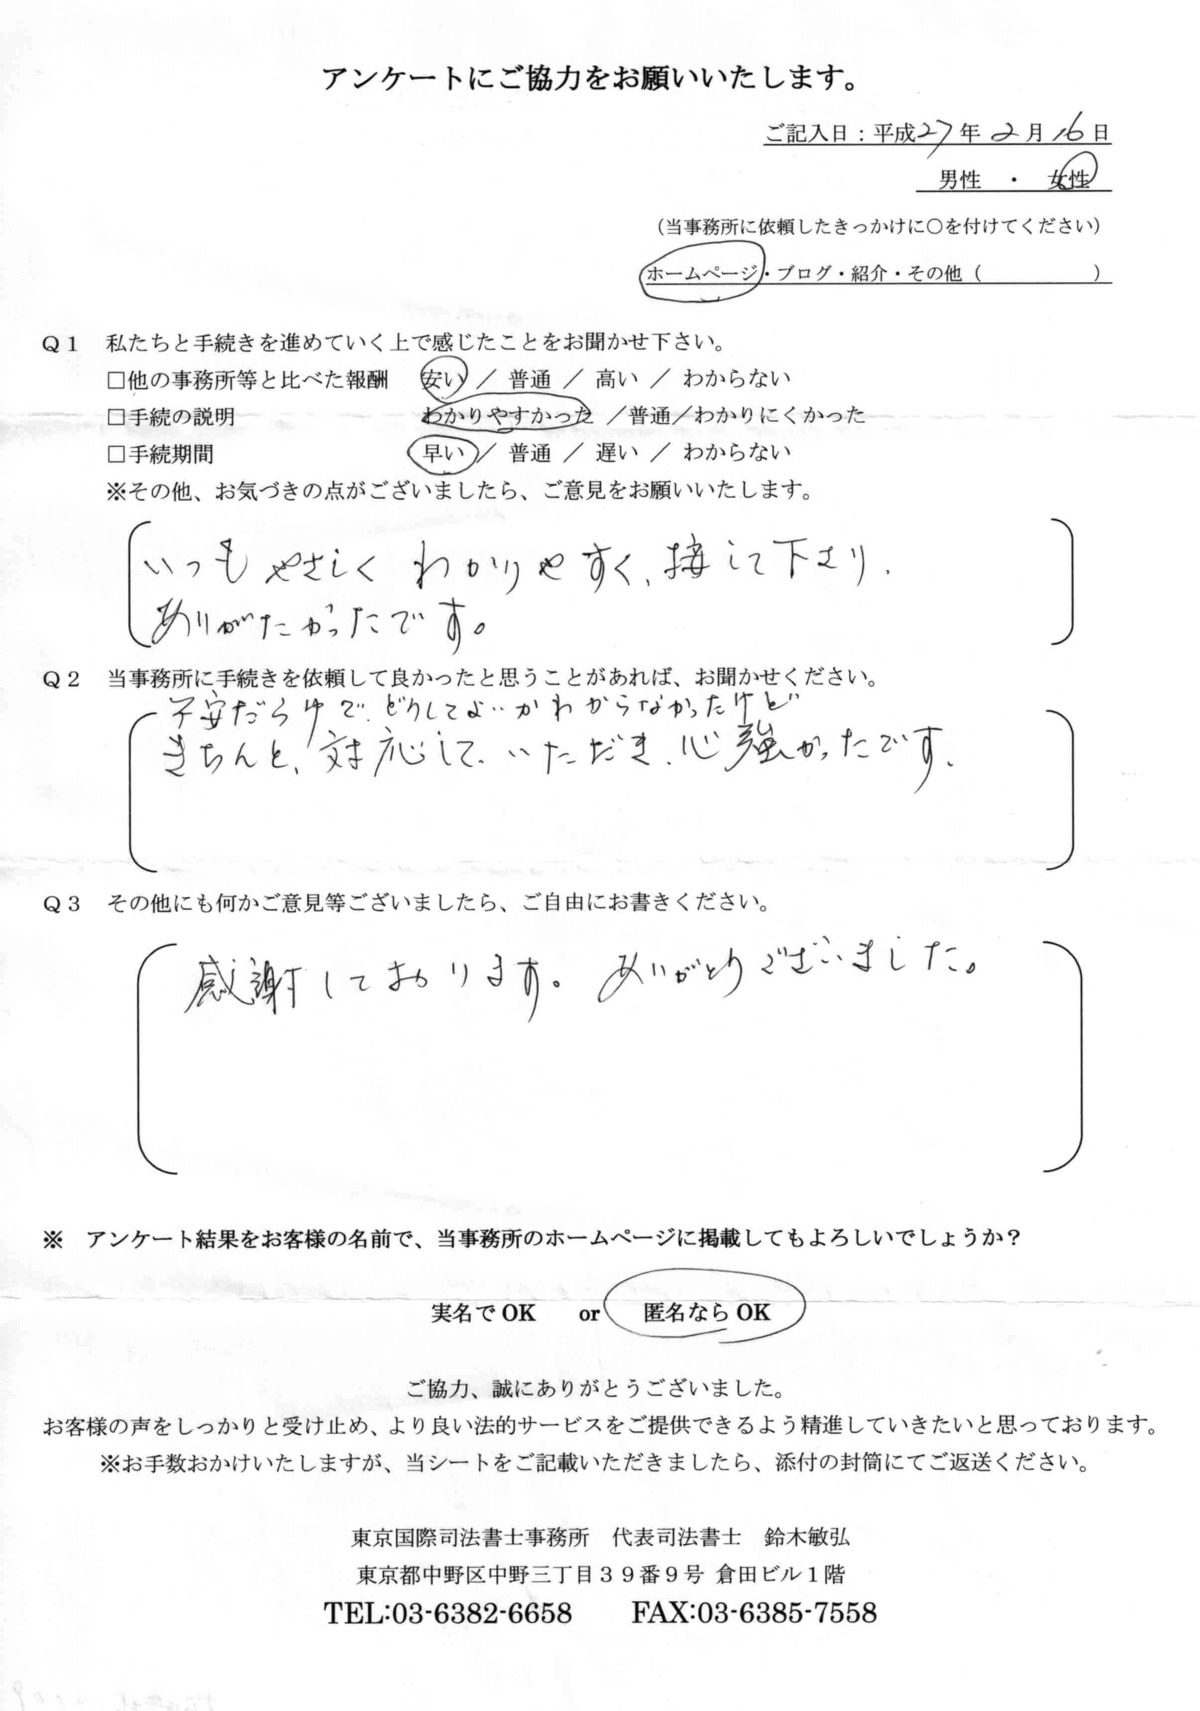 アンケートにご協力をお願いいたします。
ご記入日：平成27年 2月16日
男性 ・ 女性
（当事務所に依頼したきっかけに○を付けてください）
ホームページ・ブログ・紹介・その他（　　　　　）
Q1 私たちと手続きを進めていく上で感じたことをお聞かせ下さい。
□他の事務所等と比べた報酬 安い ／ 普通 ／ 高い ／ わからない
□手続の説明 わかりやすかった ／普通／わかりにくかった
□手続期間 早い ／ 普通 ／ 遅い ／ わからない
※その他、お気づきの点がございましたら、ご意見をお願いいたします。
いつもやさしくわかりやすく、接して下さり、
ありがたかったです。
Q2 当事務所に手続きを依頼して良かったと思うことがあれば、お聞かせください。
不安だらけで、どうしてよいかわからなかったけど
きちんと、対応して、いただき、心強かったです、
Q3 その他にも何かご意見等ございましたら、ご自由にお書きください。
感謝しております。ありがとうございました。
※ アンケート結果をお客様の名前で、当事務所のホームページに掲載してもよろしいでしょうか？
実名でOK or 匿名ならOK
ご協力、誠にありがとうございました。
お客様の声をしっかりと受け止め、より良い法的サービスをご提供できるよう精進していきたいと思っております。
※お手数おかけいたしますが、当シートをご記載いただきましたら、添付の封筒にてご返送ください。
東京国際司法書士事務所 代表司法書士 鈴木敏弘
東京都中野区中野三丁目３９番９号 倉田ビル１階
TEL:03-6382-6658 FAX:03-6385-7558